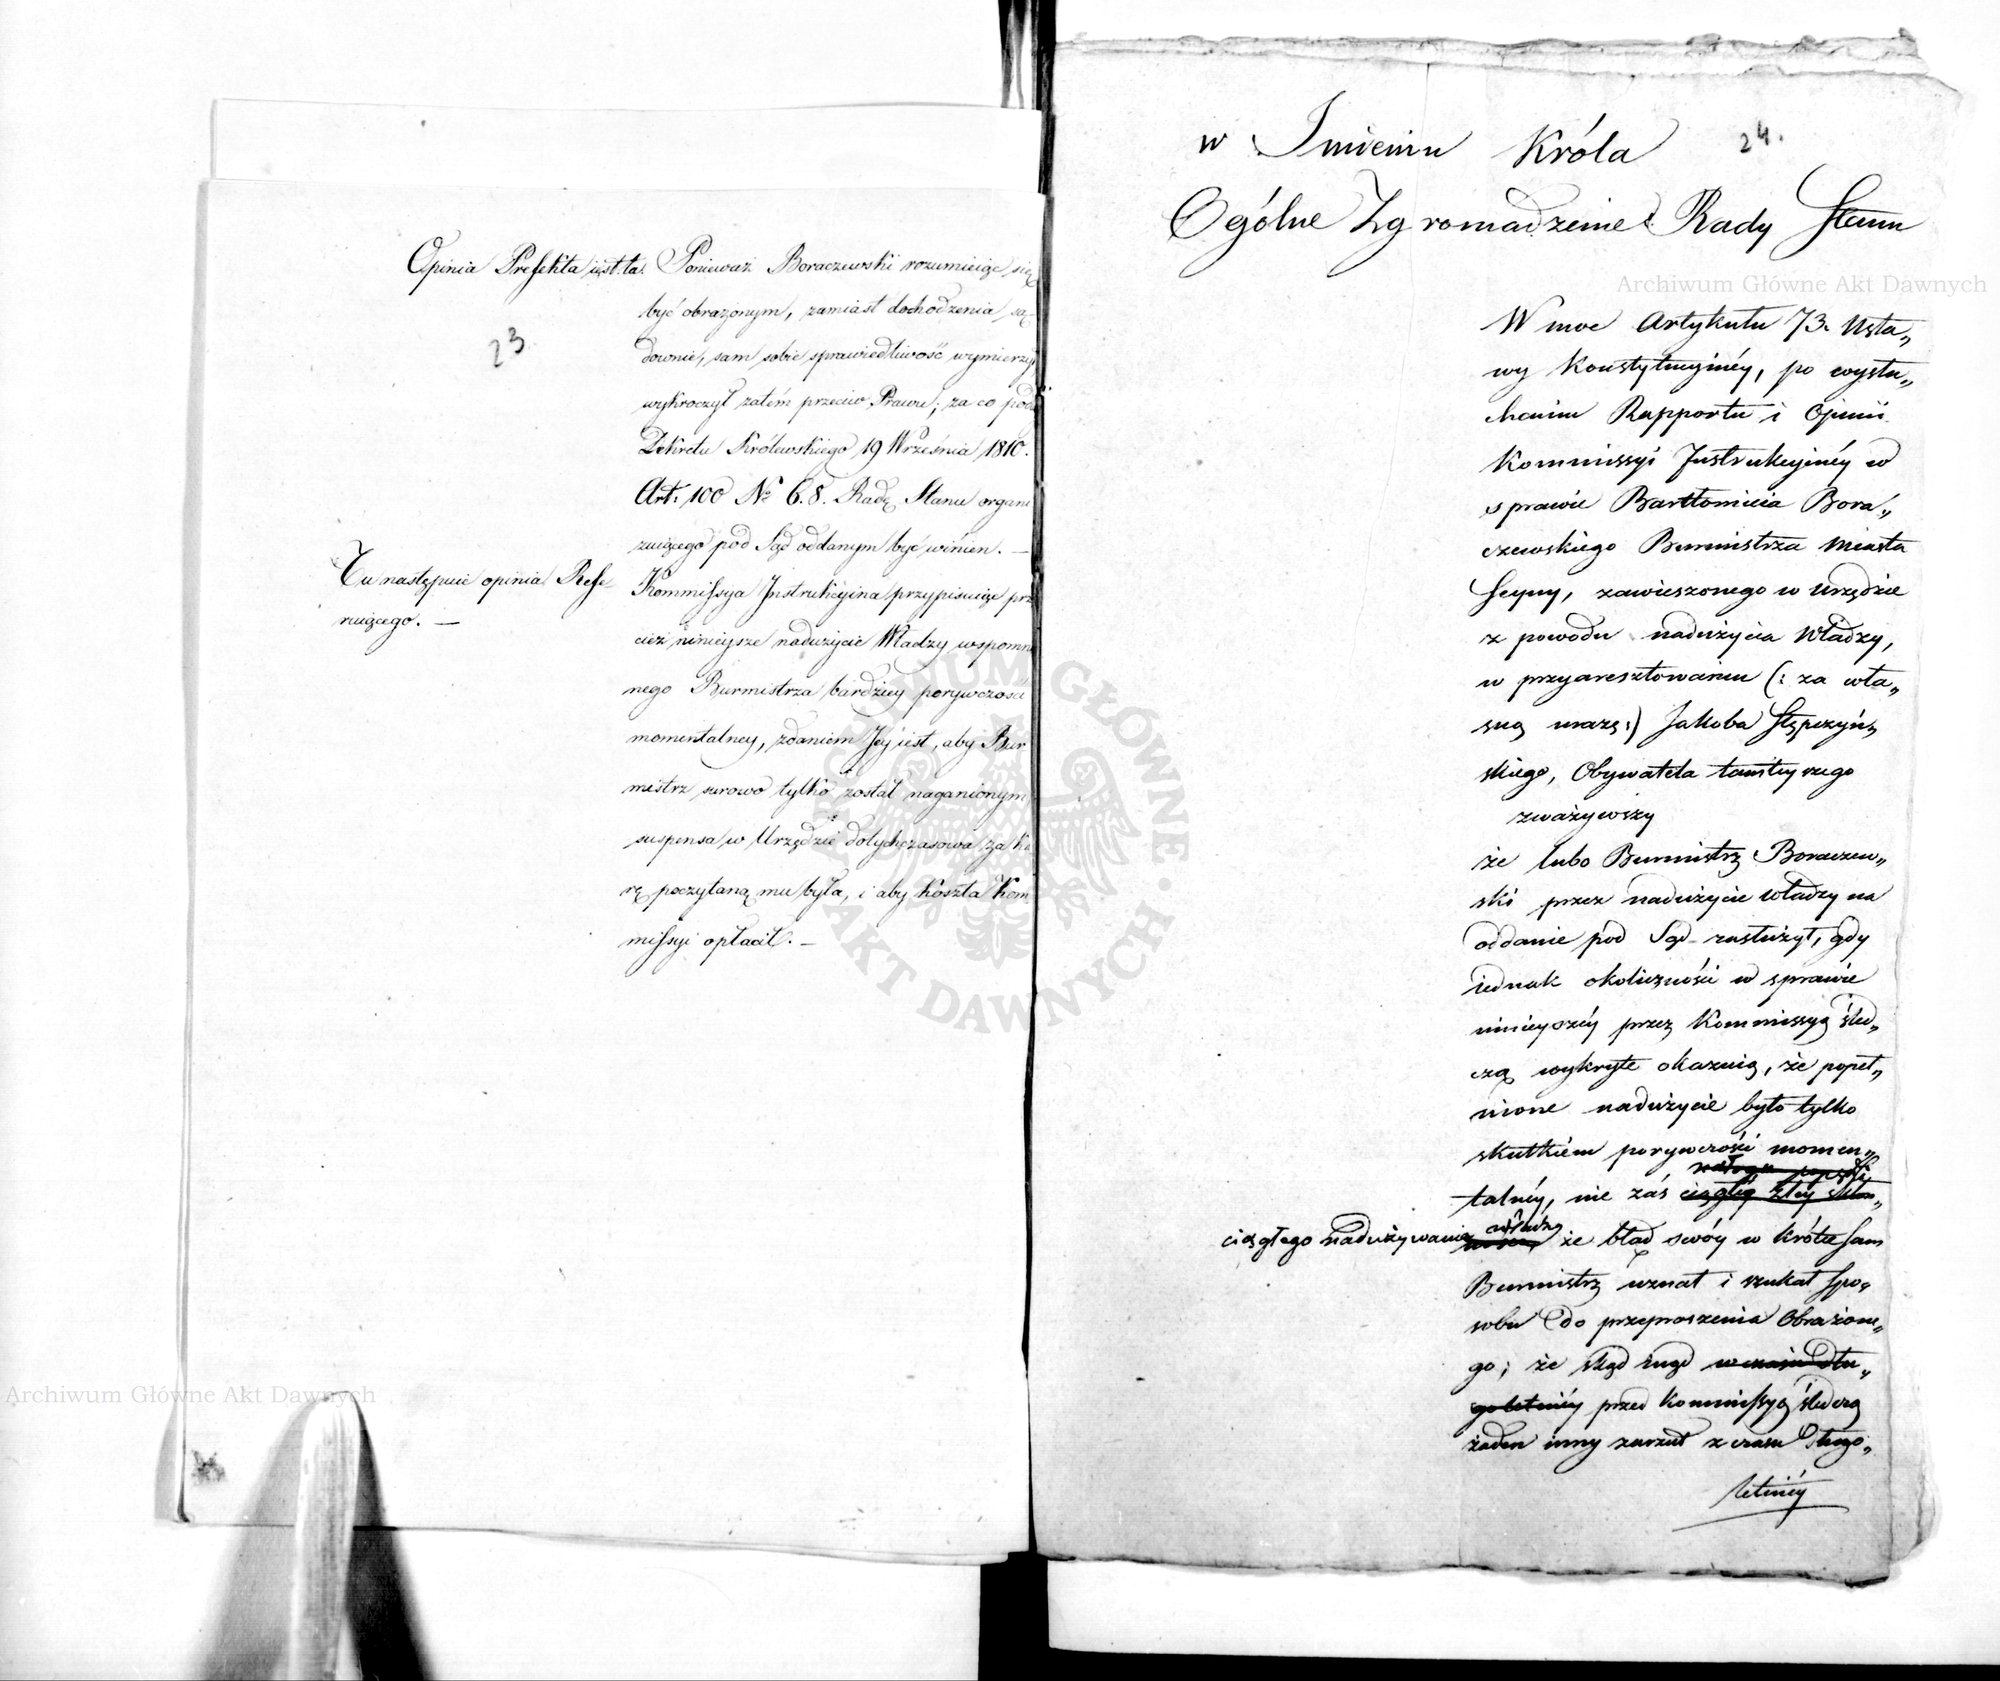 Opinia Prefekta iest ta. Ponieważ Boraczewski rozumieiąc się
być obrażonym, zamiast dochodzenia są-
downie, sam sobie sprawiedliwość wymierzył
wykroczył zatém przeciw Prawu; za co podł
Dekretu Królewskiego 19 Września 1810.
Art: 100 No 6.8. Radę Stanu organi
zuiącego pod Sąd oddanym być winien. —
23
Tu następuie opinia Refe-
ruiącego. —
Kommissya Instrukcyina przypisuiąc prze
cież ninieysze nadużycie Władzy wspomnio
nego Burmistrza bardziey porywczości
momentalney, zdaniem Jey iest, aby Bur
mistrz surowo tylko został naganionym
suspensa w Urzędzie dotychczasowa za ka
rę poczytaną mu była, i aby koszta Kom
missyi opłacił. —
24.
w Imieniu Króla
Ogólne Zgromadzenie Rady Stanu
W moc Artykułu 73. Usta„
wy Konstytucyinéy, po wysłu„
chaniu Rapportu i Opinii
Kommissyi Instrukcyinéy w
sprawie Bartłomieia Bora„
czewskiego Burmistrza Miasta
Seyny, zawieszonego w urzędzie
z powodu nadużycia Władzy,
w przyaresztowaniu (: za wła„
sną urazę :) Jakoba Stępczyń„
skiego, Obywatela tamteyszego
zważywszy
że lubo Burmistrz Boraczew„
ski przez nadużycie władzy na
oddanie pod Sąd zasłużył, gdy
iednak okoliczności w sprawie
ninieyszéy przez Kommissyą śled„
czą wykryte okazuią, że popeł„
nione nadużycie było tylko
skutkiem porywczości momen„
nałogu
talnéy, nie zaś ciągłéy złéy skłon„
ciągłego nadużywania władzy
ności, że błąd swóy w krótce sam
Burmistrz uznał i szukał spo„
sobu do przeproszenia Obrażone„
go; że skąd inąd w czasie dłu„
goletniéy przed Kommissyą śledczą
żaden inny zarzut z czasu długo„
letniéy
Archiwum Główne Akt Dawnych
Archiwum Główne Akt Dawnych
ARCHIWUM GŁÓWNE AKT DAWNYCH